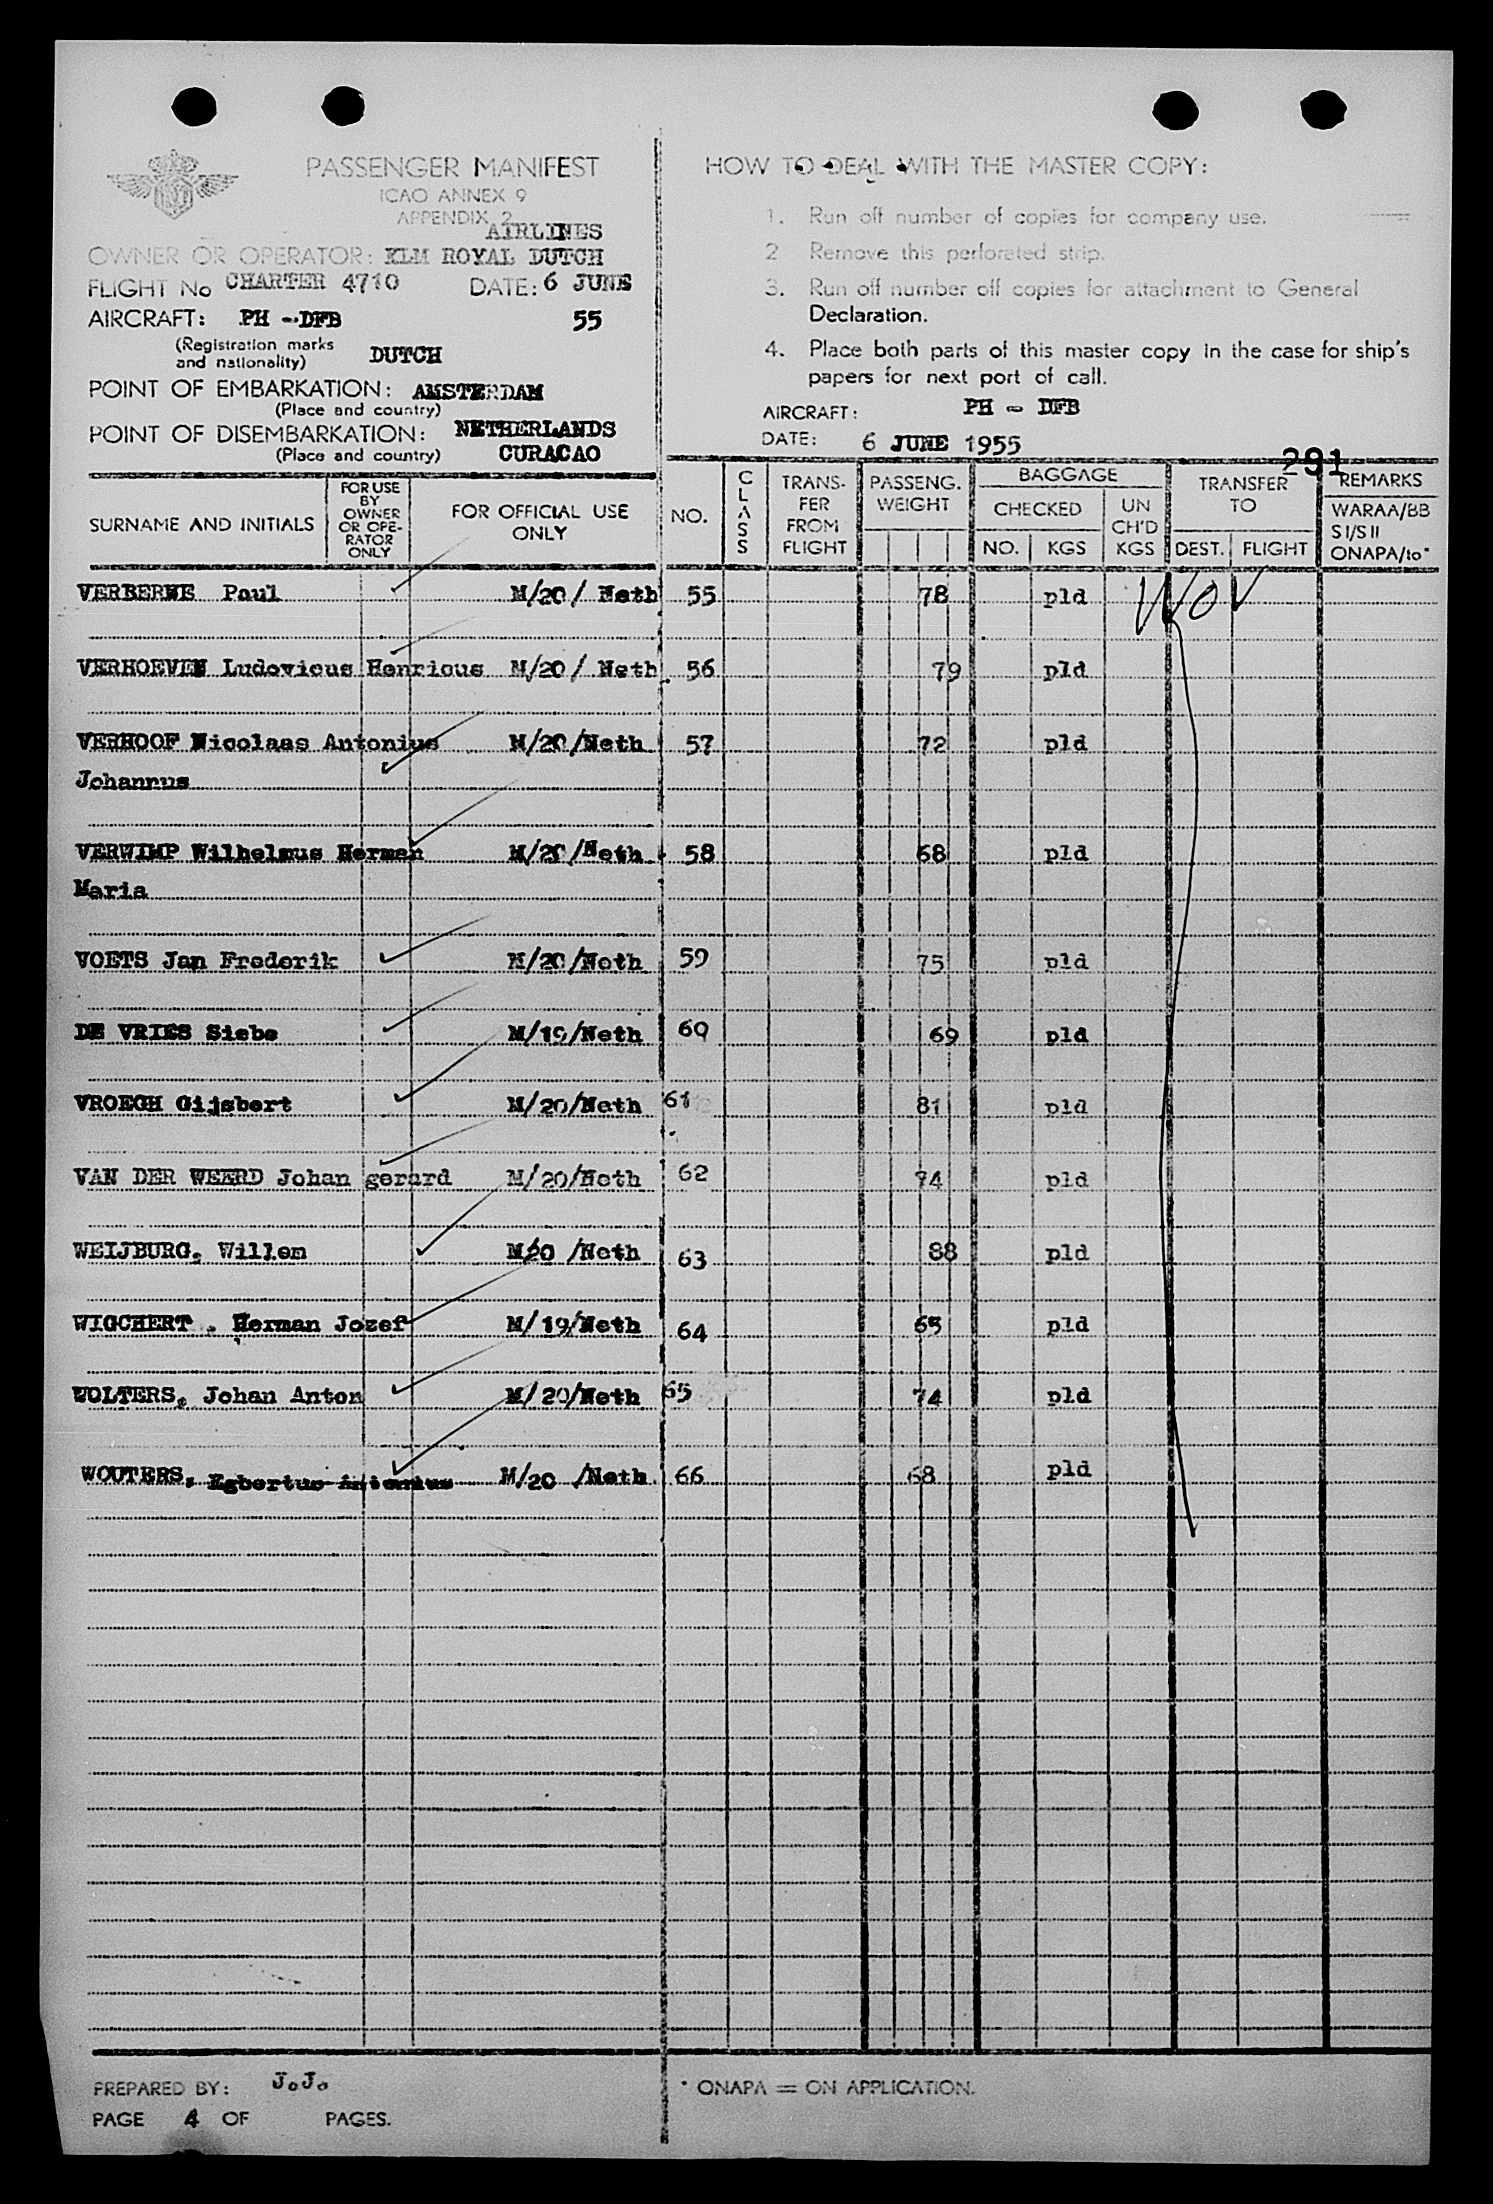 PASSENGER MANIFEST
ICAO ANNEX 9
APPENDIX 2
AIRLINES
OWNER OR OPERATOR: KLM ROYAL DUTCH
FLIGHT No CHARTER 4710 DATE: 6 JUNE
AIRCRAFT: PH - DFB 55
(Registration marks
and nationality) DUTCH
POINT OF EMBARKATION: AMSTERDAM
(Place and country)
NETHERLANDS
POINT OF DISEMBARKATION:
(Place and country) CURACAO
HOW TO DEAL WITH THE MASTER COPY:
1. Run off number of copies for company use.
2 Remove this perforated strip.
3. Run off number off copies for attachment to General
Declaration.
4. Place both parts of this master copy in the case for ship's
papers for next port of call.
AIRCRAFT: PH - DFB
DATE: 6 JUNE 1955
291
SURNAME AND INITIALS
FOR USE
BY
OWNER
OR OPE-
RATOR
ONLY
FOR OFFICIAL USE
ONLY
NO.
CLASS
TRANS-
FER
FROM
FLIGHT
PASSENG.
WEIGHT
BAGGAGE
CHECKED
NO. KGS
UN
CH'D
KGS
TRANSFER
TO
DEST. FLIGHT
REMARKS
WARAA/BB
S I/S II
ONAPA/to*
VERBERNE Paul M/20/ Neth 55 78 pld
VERHOEVEN Ludovicus Henricus M/20/ Neth 56 79 pld
VERHOOF Nicolaas Antonius M/20/Neth 57 72 pld
Johannus
VERWIMP Wilhelmus Herman M/20/Neth 58 68 pld
Maria
VOETS Jan Frederik M/20/Neth 59 75 pld
DE VRIES Siebe M/19/Neth 60 69 pld
VROEGH Gijsbert M/20/Neth 61 81 pld
VAN DER WEERD Johan gerard M/20/Neth 62 74 pld
WEIJBURG, Willem M/20 /Neth 63 88 pld
WIGCHERT , Herman Jozef M/19/Neth 64 65 pld
WOLTERS, Johan Anton M/20/Neth 65 74 pld
WOUTERS, Egbertus Antonius M/20 /Neth 66 68 pld
PREPARED BY: J.J.
PAGE 4 OF PAGES.
* ONAPA = ON APPLICATION.